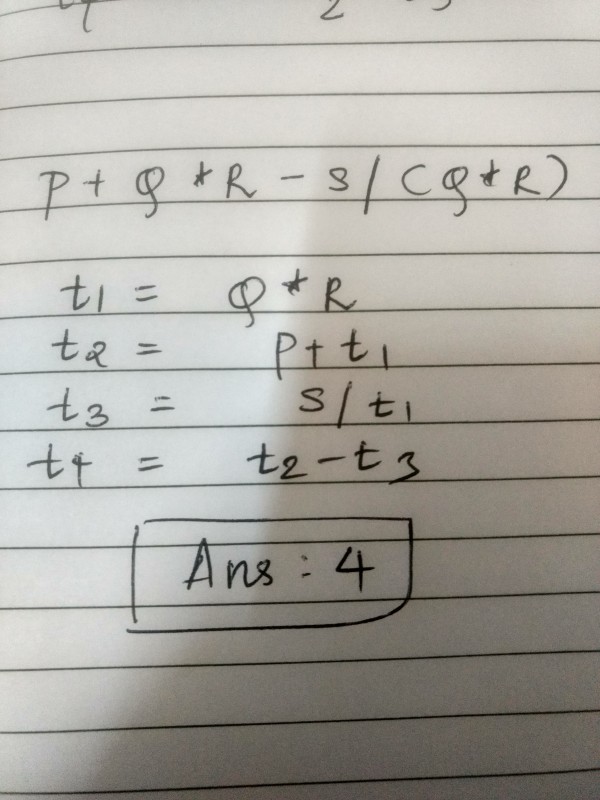 P + Q * R - S / (Q * R)
t1 = Q * R
t2 = P + t1
t3 = S / t1
t4 = t2 - t3
Ans : 4